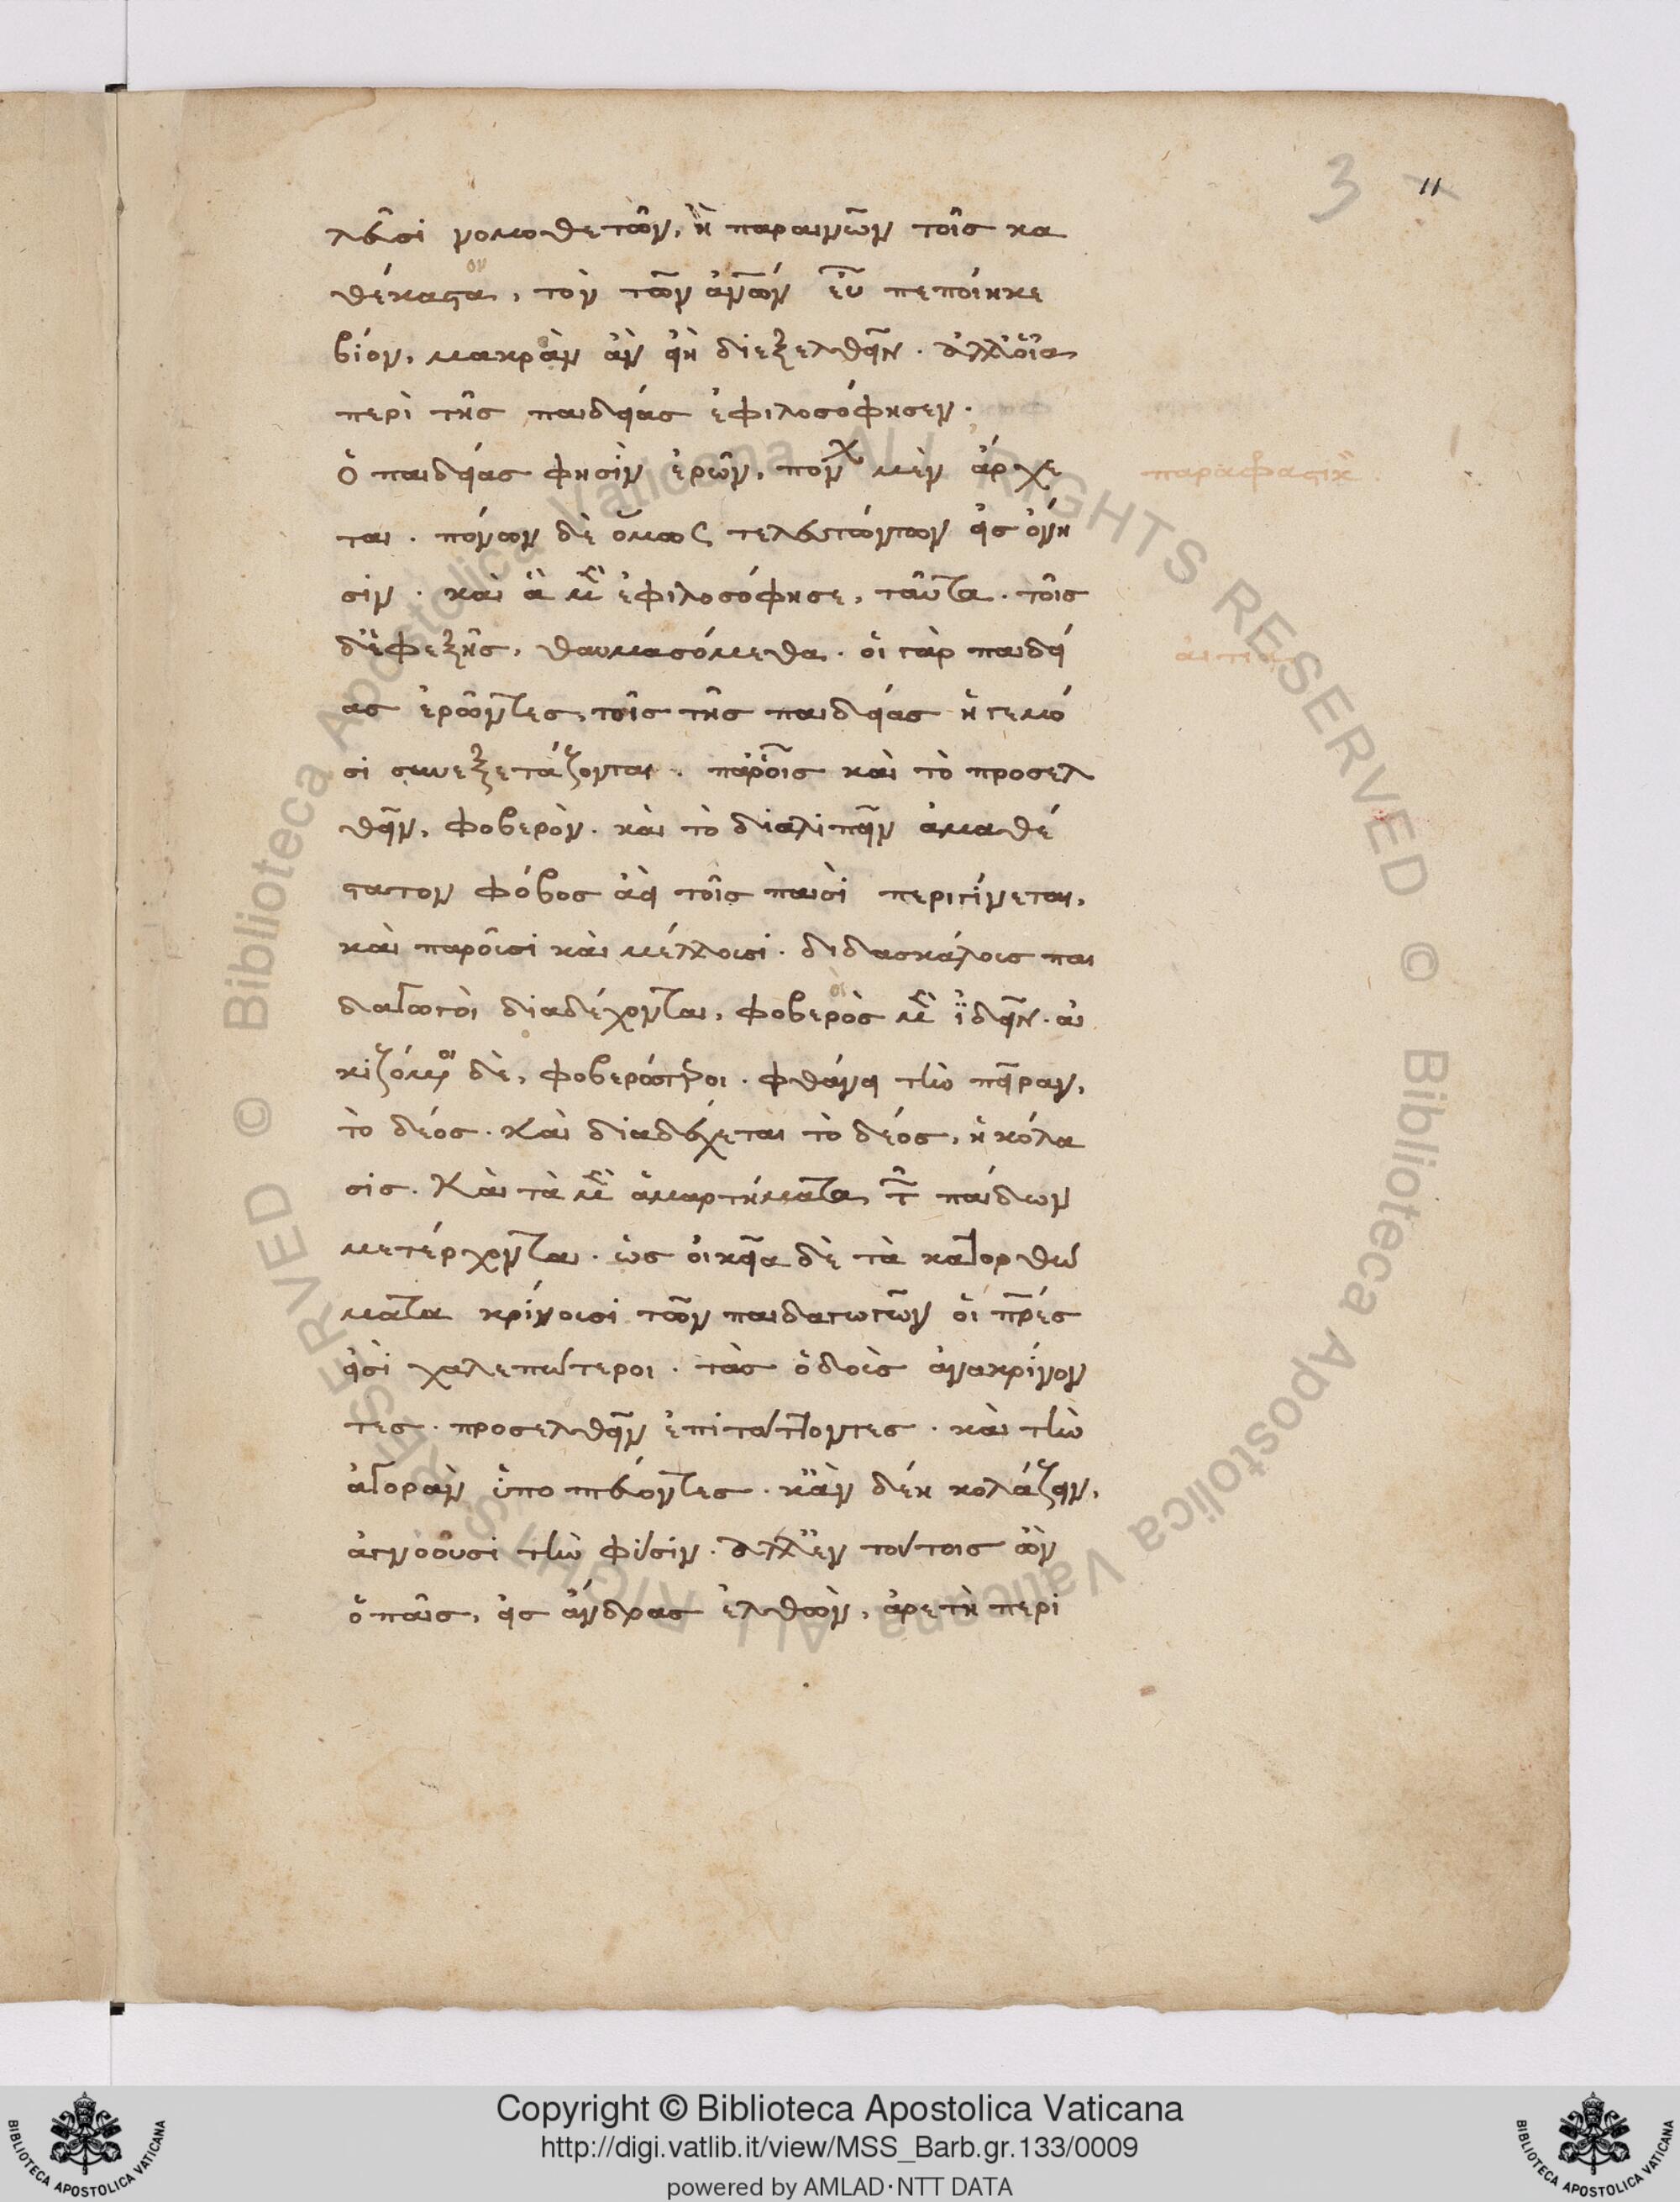 3 11
λεῦσι νομοθετῶν, ἢ παραινῶν τοῖς κα
θέκαστον, τὸν τῶν ἀνῶν εὖ πεποίηκε
βίον, μακρὸν ἂν εἴη διεξελθεῖν. ἀλλ' οἷα
περὶ τῆς παιδείας ἐφιλοσόφησεν.
ὁ παιδείας φησὶν ἐρῶν, πον μὲν ἄρχε
ται. πόνων δὲ ὅμως τελευτώντων εἰς ὄνη
σιν. καὶ ἃ μὲν ἐφιλοσόφησε, ταῦτα. τοῖς
δ' ἐφεξῆς, θαυμασόμεθα. οἱ γὰρ παιδεί
ας ἐρῶντες, τοῖς τῆς παιδείας ἡγεμό
σι συνεξετάζονται. παρ' οἷς καὶ τὸ προσελ
θεῖν, φοβερὸν. καὶ τὸ διαλιπεῖν ἀμαθέ
στατον φόβος ἀεὶ τοῖς παισὶ περιγίνεται,
καὶ παροῦσι καὶ μέλλουσι. διδασκάλους παι
δαγωγοὶ διαδέχονται, φοβεροὶ μὲν ἰδεῖν. αἰ
κιζόμενοι δὲ, φοβερώτεροι. φθάνει τὴν πεῖραν,
τὸ δέος. καὶ διαδέχεται τὸ δέος, ἡ κόλα
σις. Καὶ τὰ μὲν ἁμαρτήματα τῶν παίδων
μετέρχονται. ὡς οἰκεῖα δὲ τὰ κατορθώ
ματα κρίνουσι τῶν παιδαγωγῶν οἱ πρές
εἰσὶ χαλεπώτεροι. τὰς ὁδοὺς ἀνακρίνον
τες. προσελθεῖν ἐπιτάττοντες. καὶ τὴν
ἀγορὰν ὑποπτεύοντες. κἂν δέῃ κολάζειν,
ἀγνοοῦσι τὴν φύσιν. ἀλλ' ἐν τούτοις ὢν
ὁ παῖς, εἰς ἄνδρας ἐλθὼν, ἀρετῇ περι
παραφραστικ
αἰτία
Copyright © Biblioteca Apostolica Vaticana
http://digi.vatlib.it/view/MSS_Barb.gr.133/0009
powered by AMLAD·NTT DATA
BIBLIOTECA APOSTOLICA VATICANA
BIBLIOTECA APOSTOLICA VATICANA
© Biblioteca Apostolica Vaticana ALL RIGHTS RESERVED © Biblioteca Apostolica Vaticana ALL RIGHTS RESERVED